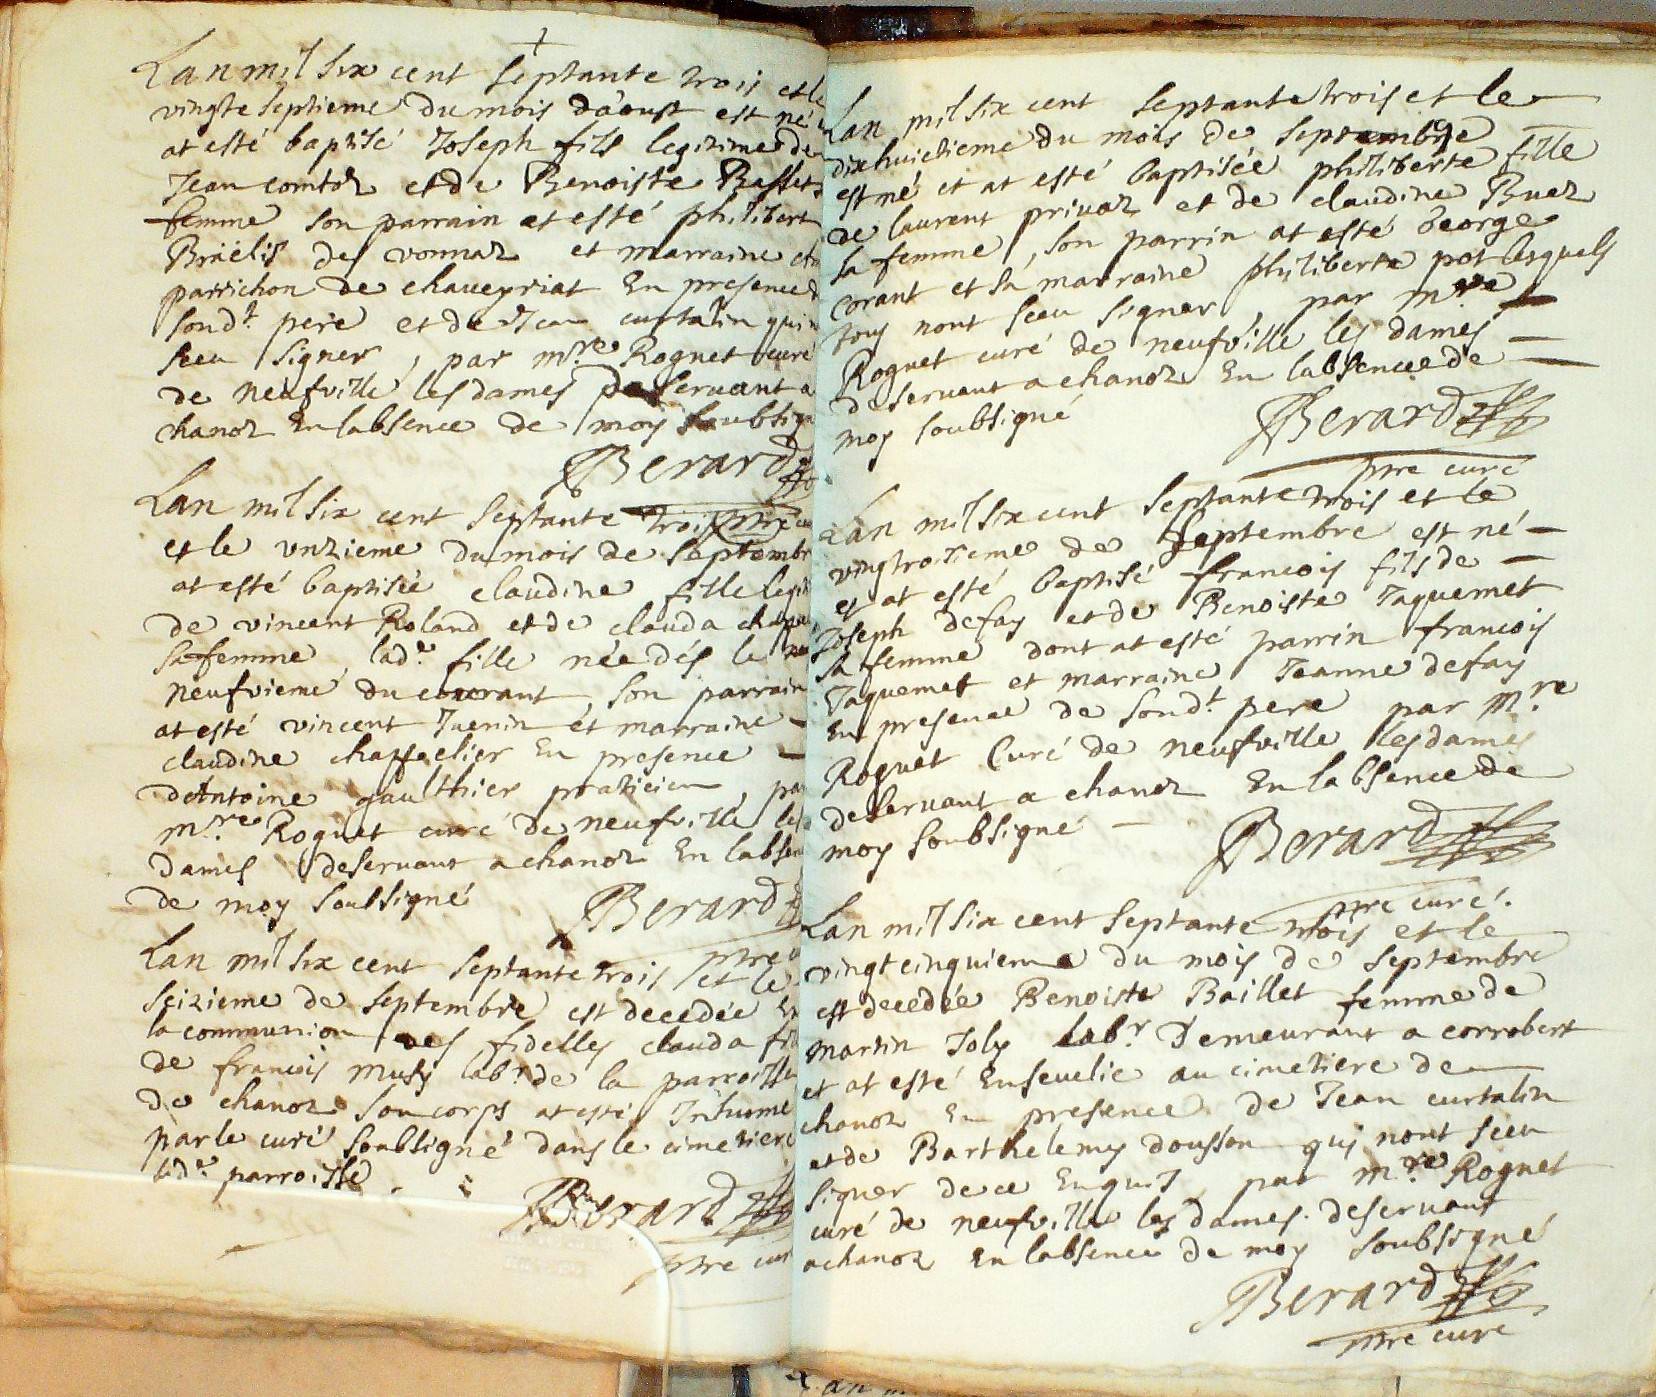 Lan mil six cent septante trois et le
vingte septieme du mois daoust est né
at esté baptisé Joseph fils legitime de
Jean comtoz et de Benoiste Basset
femme son parrain at esté philibert
de vonnaz et marraine
parrichon de chaveyriat En presence
sond.t pere et de Jean curtalin qui
sceu signer, par m.re Roguet curé
de neufville les dames deservant a
chanoz En labsence de moy soubsign
Berard
Lan mil six cent septante trois
et le unzieme du mois de septembr
at esté baptisée claudine fille legi
de vincent Roland et de clauda
sa femme, lad.e fille née dés le
neufvieme du courant, son parrain
at esté vincent Juenin et marraine
claudine chappelier En presence
dAntoine gaulthier praticien, pa
m.re Roguet curé de neufville les
dames deservant a chanoz En labsen
de moy soubsigné
Berard
ptre
Lan mil six cent septante trois et le
seizieme de septembre est decedée En
la communion des fidelles clauda fil
de francois musy lab.r de la parroisse
de chanoz son corps at esté Inhumé
par le curé soubsigné dans le cimetiere
lad.e parroisse.
Berard
ptre cur
Lan mil six cent septante trois et le
dixhuictieme du mois de septembre
est né et at esté baptisée philiberte fille
de laurent privaz et de claudine Buez
sa femme, son parrin at esté George
corant et sa marraine philiberte pot lesquels
tous nont sceu signer, par m.re
Roguet curé de neufville les dames
deservant a chanoz En labsence de
moy soubsigné
Berard
ptre curé
Lan mil six cent septante trois et le
vingtroisieme de septembre est né
et at esté baptisé francois fils de
Joseph defay et de Benoiste Jaquemet
sa femme dont at esté parrin francois
Jaquemet et marraine Jeanne defay
En presence de sond.t pere par m.re
Roguet Curé de neufville les dames
deservant a chanoz En labsence de
moy soubsigné
Berard
ptre curé.
Lan mil six cent septante trois et le
vingtcinquieme du mois de septembre
est decedée Benoiste Baillet femme de
martin Joly lab.r Demeurant a corrobert
et at esté Ensevelie au cimetiere de
chanoz En presence de Jean curtalin
et de Barthelemy dousson qui nont sceu
signer de ce Enquis, par m.re Roguet
curé de neufville les dames. deservant
a chanoz En labsence de moy soubsigné
Berard
ptre curé